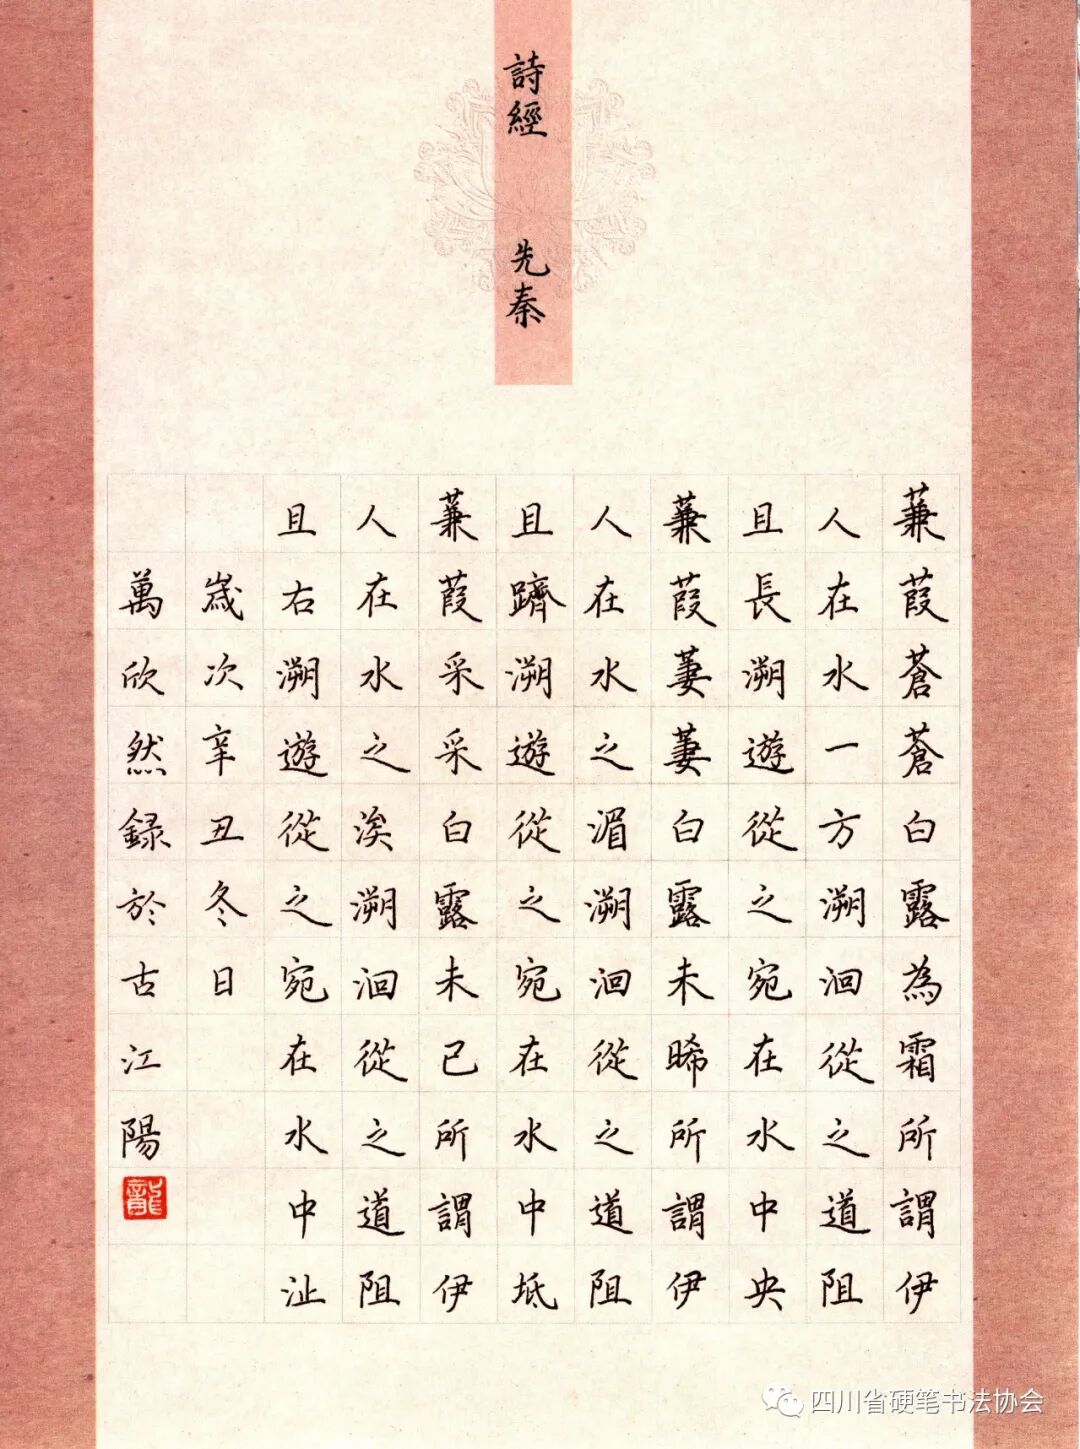 詩經 先秦
蒹葭蒼蒼白露為霜所謂伊
人在水一方溯洄從之道阻
且長溯遊從之宛在水中央
蒹葭萋萋白露未晞所謂伊
人在水之湄溯洄從之道阻
且躋溯遊從之宛在水中坻
蒹葭采采白露未已所謂伊
人在水之涘溯洄從之道阻
且右溯遊從之宛在水中沚
歲次辛丑冬日
萬欣然録於古江陽
龍
四川省硬笔书法协会